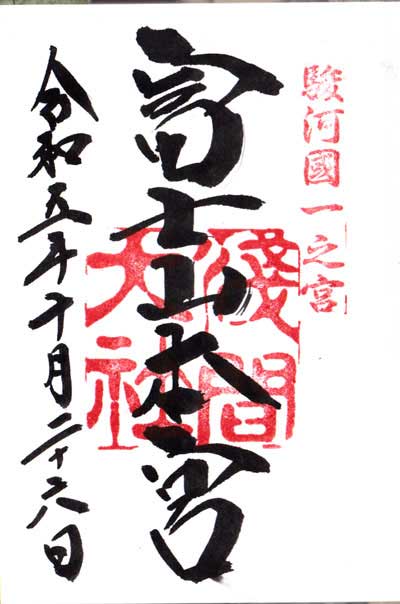 駿河國一之宮
富士山本宮
淺間大社
令和五年十月二十六日